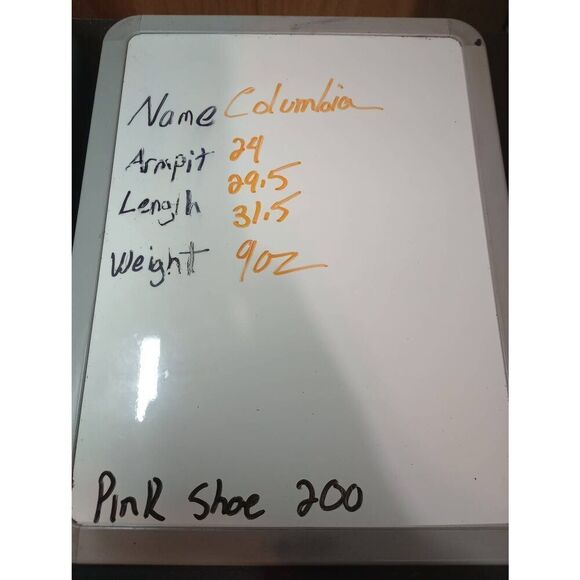 Name Columbia
Armpit 24
29.5
Length 31.5
Weight 9oz
Pink Shoe 200